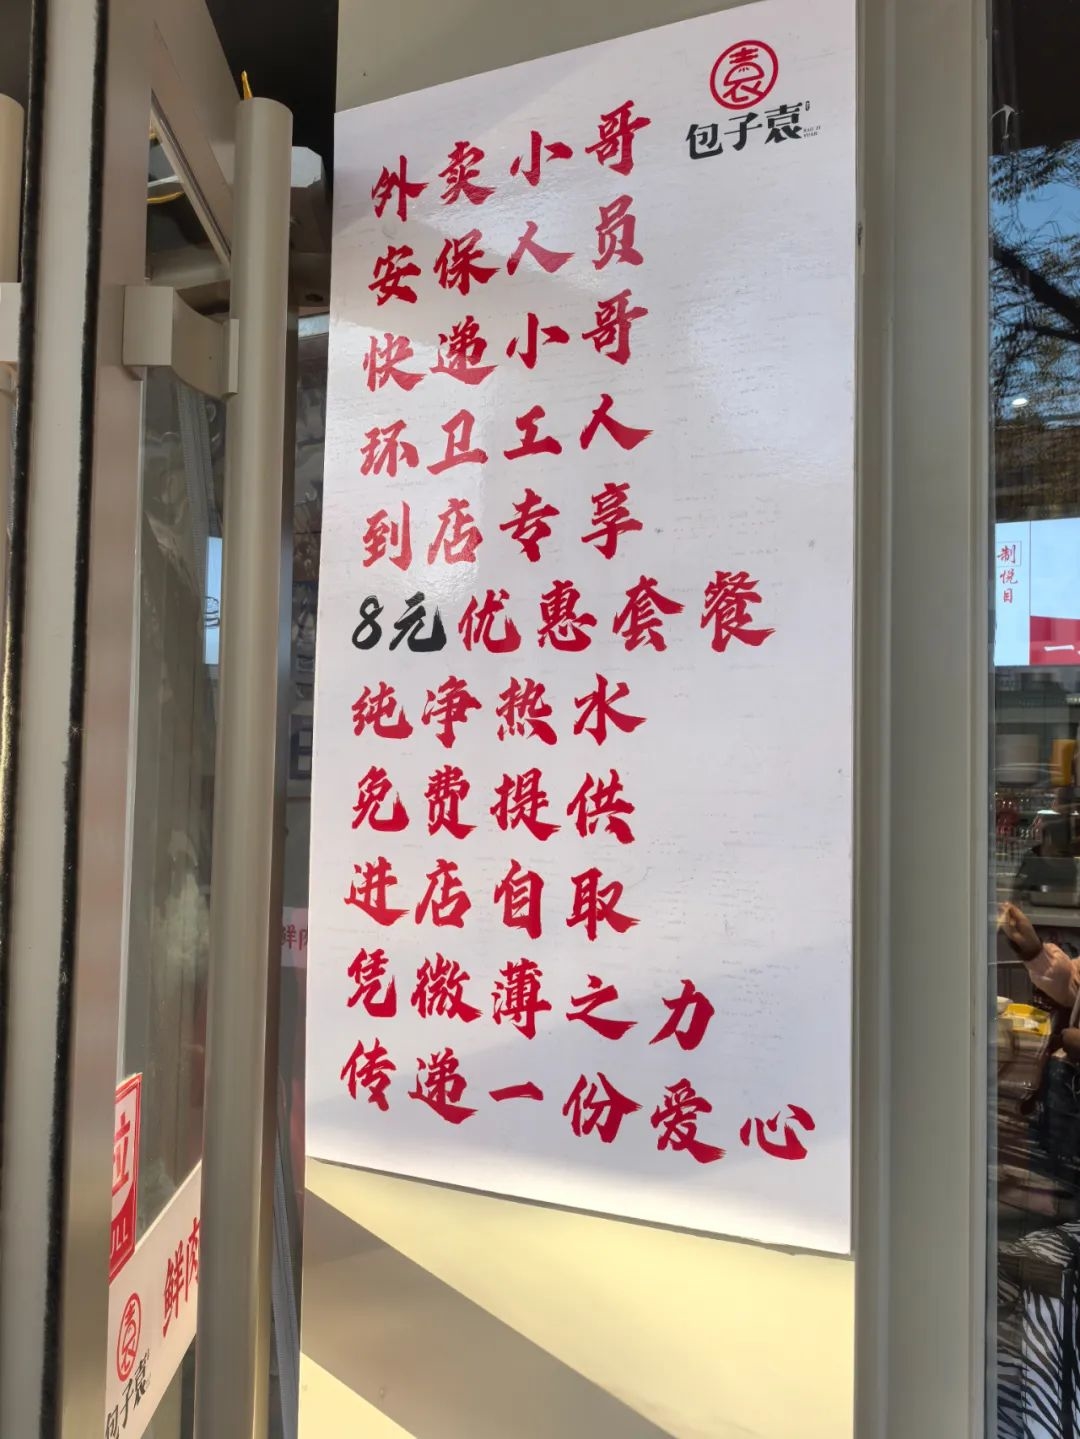 袁
包子袁
BAO ZI
YUAN
外卖小哥
安保人员
快递小哥
环卫工人
到店专享
8元优惠套餐
纯净热水
免费提供
进店自取
凭微薄之力
传递一份爱心
制悦目
一
鲜肉
拉
鲜肉
袁
包子袁